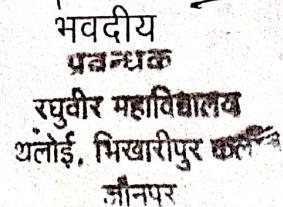 भवदीय
प्रबन्धक
रघुवीर महाविद्यालय
थलोई, भिखारीपुर कलाँ
जौनपुर